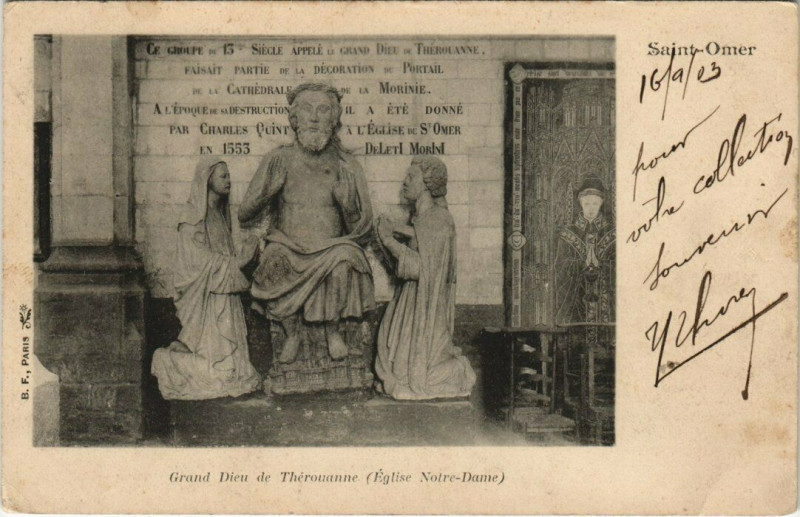 CE GROUPE DU 13e SIÈCLE APPELÉ LE GRAND DIEU DE THÉROUANNE,
FAISAIT PARTIE DE LA DÉCORATION DU PORTAIL
DE LA CATHÉDRALE DE LA MORINIE.
A L'ÉPOQUE DE SA DESTRUCTION IL A ÉTÉ DONNÉ
PAR CHARLES QUINT A L'ÉGLISE DE St OMER
EN 1553 DELETI MORINI
Saint-Omer
16/9/03
pour
votre collection
souvenir
B. F., PARIS
Grand Dieu de Thérouanne (Église Notre-Dame)